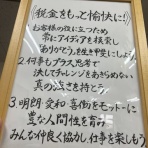 《税金をもっと愉快に!》
お客様の役に立つため
常にアイディアを模索し
ありがとうを生き甲斐にしよう。
2.何事もプラス思考で
決してチャレンジをあきらめない
真の強さを持とう。
3.明朗・愛和・喜働をモットーに
豊かな人間性を育み
みんな仲良く協力し仕事を楽しもう